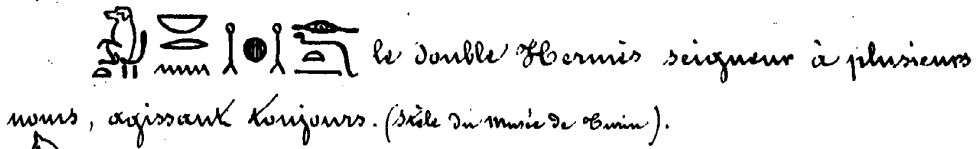 le double Hermès seigneur à plusieurs
noms, agissant toujours. (Stèle du musée de Turin).